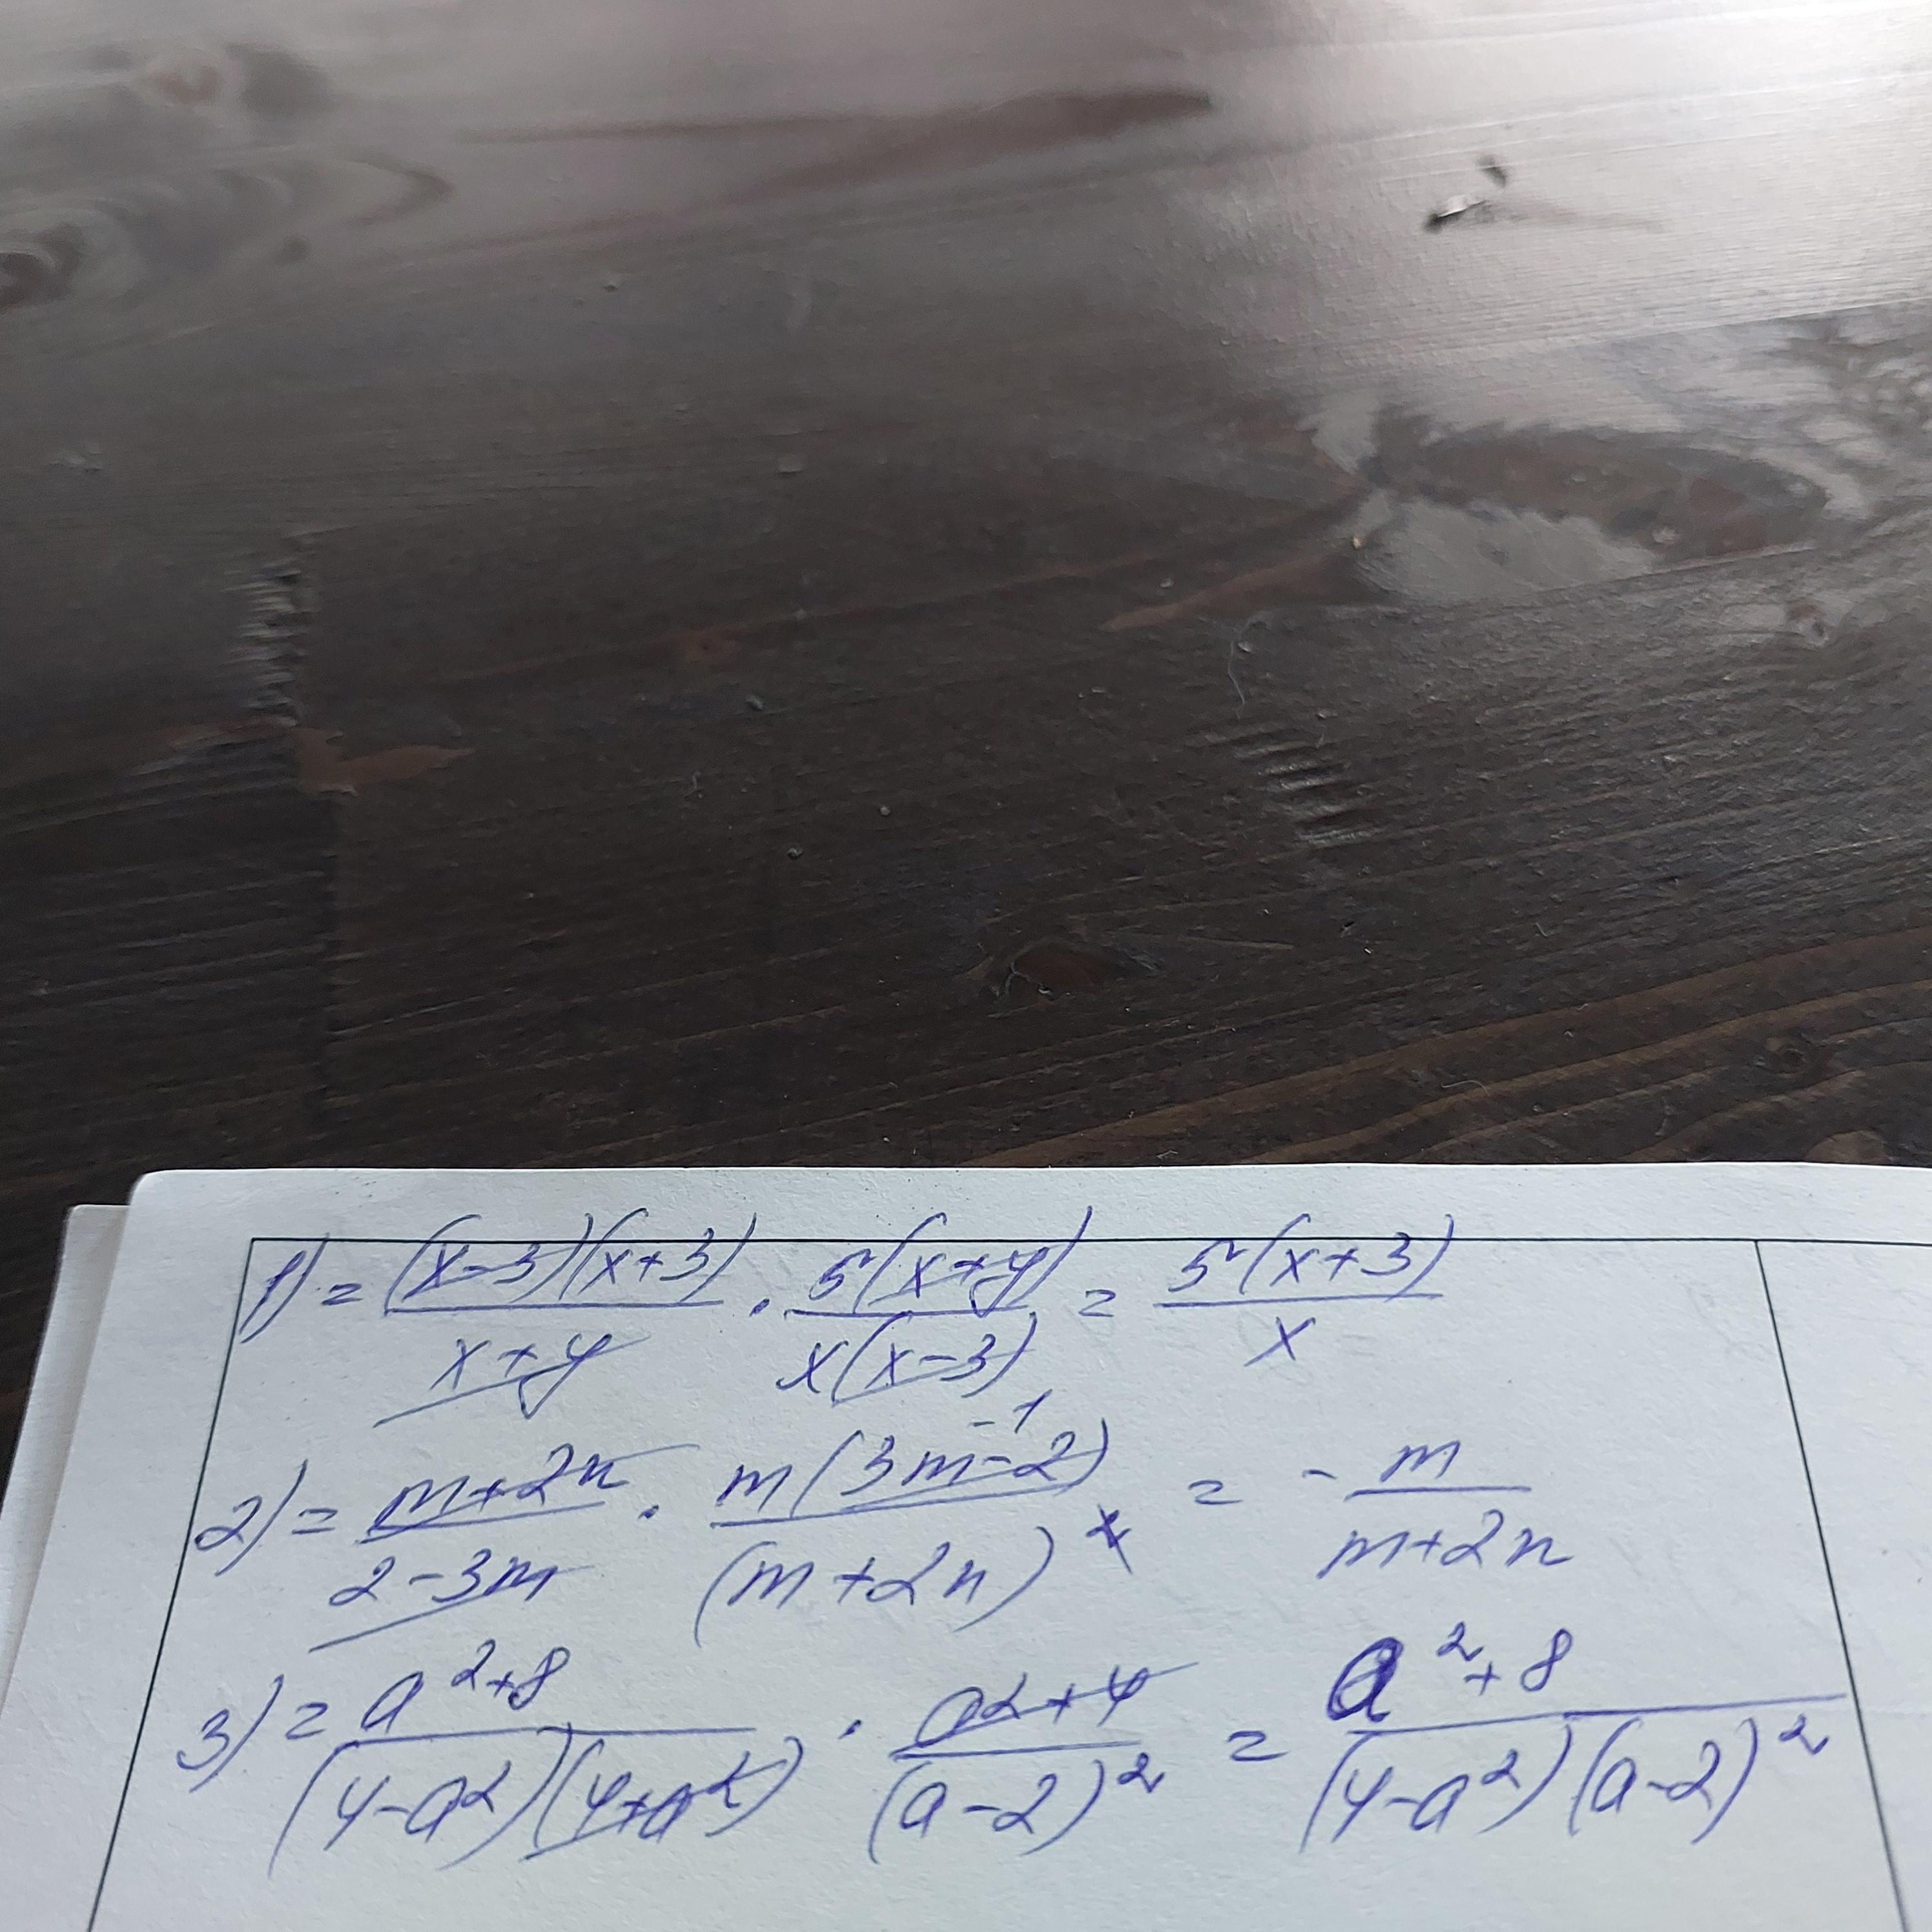 1) = (x-3)(x+3)/x+y · 5(x+y)/x(x-3) = 5(x+3)/x
2) = m+2n/2-3m · m(3m-2)⁻¹/(m+2n)² = - m/m+2n
3) = a²+8/(4-a²)(4+a²) · a²+4/(a-2)² = a²+8/(4-a²)(a-2)²